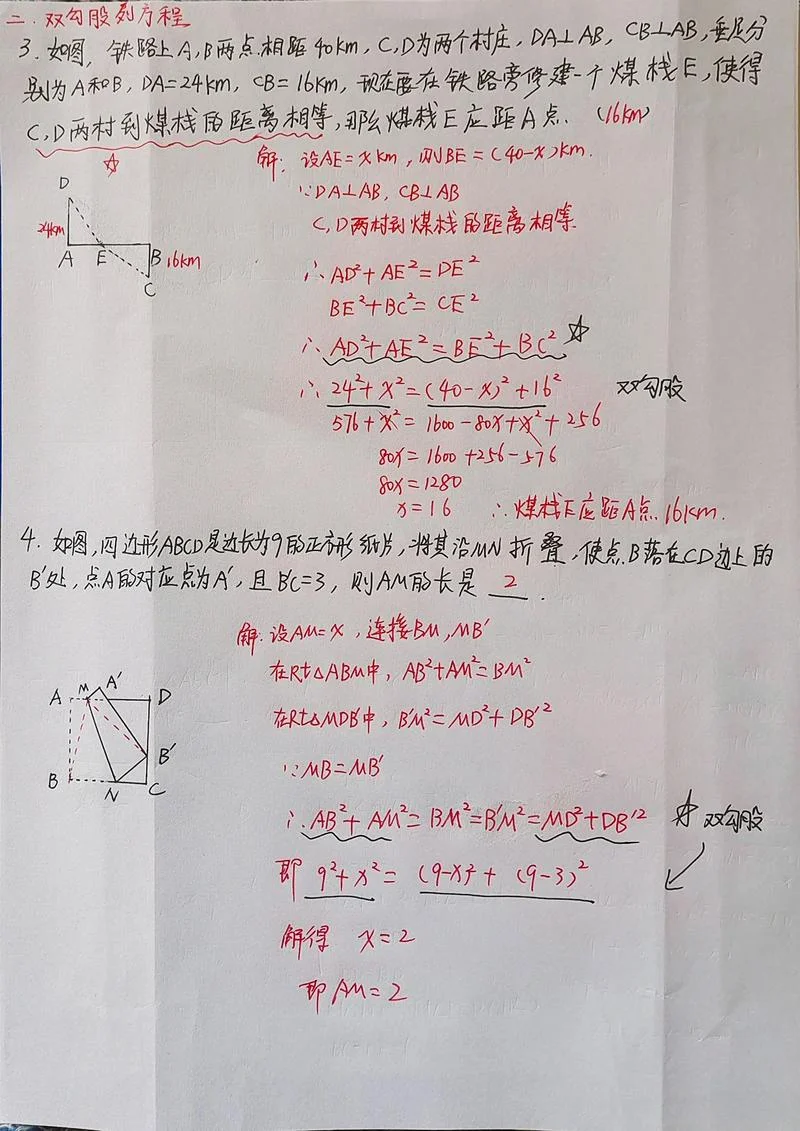 二. 双勾股列方程
3. 如图, 铁路上A,B两点相距40km, C,D为两个村庄, DA⊥AB, CB⊥AB, 垂足分
别为A和B, DA=24km, CB=16km, 现在要在铁路旁修建一个煤栈E, 使得
C,D两村到煤栈的距离相等, 那么煤栈E应距A点. (16km)
解: 设AE=xkm, 则BE=(40-x)km.
∵DA⊥AB, CB⊥AB
C,D两村到煤栈的距离相等
∴AD²+AE²=DE²
BE²+BC²=CE²
∴AD²+AE²=BE²+BC²
∴24²+x²=(40-x)²+16² 双勾股
576+x²=1600-80x+x²+256
80x=1600+256-576
80x=1280
x=16 ∴煤栈E应距A点16km.
D
24km
A E B 16km
C
4. 如图, 四边形ABCD是边长为9的正方形纸片, 将其沿MN折叠, 使点B落在CD边上的
B′处, 点A的对应点为A′, 且B′C=3, 则AM的长是 2 .
解: 设AM=x, 连接BM, MB′
在Rt△ABM中, AB²+AM²=BM²
在Rt△MDB′中, B′M²=MD²+DB′²
∵MB=MB′
∴AB²+AM²=BM²=B′M²=MD²+DB′² 双勾股
即 9²+x²=(9-x)²+(9-3)²
解得 x=2
即AM=2
A M A′ D
B′
B N C